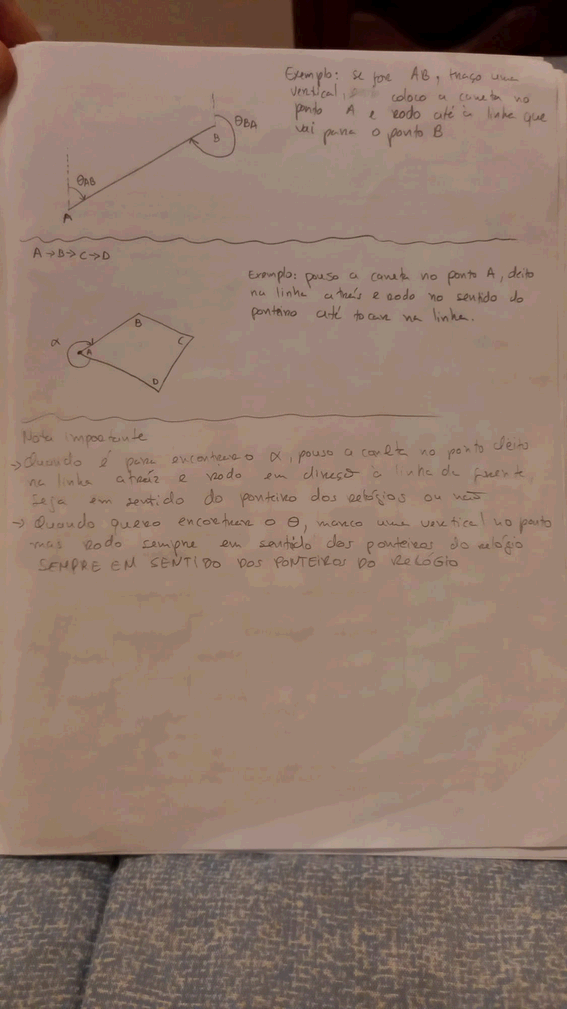 Exemplo: se for AB, traço uma
vertical, coloco a caneta no
ponto A e rodo até à linha que
vai para o ponto B
θBA
B
θAB
A
A→B→C→D
Exemplo: pouso a caneta no ponto A, deito
na linha atrás e rodo no sentido do
ponteiro até tocar na linha.
B
α
A
C
D
Nota importante
→ Quando é para encontrar o α, pouso a caneta no ponto deito
na linha atraiz e rodo em direção à linha da frente
seja em sentido do ponteiro dos relógios ou não
→ Quando quero encontrar o θ, marco uma vertical no ponto
mas rodo sempre em sentido dos ponteiros do relógio
SEMPRE EM SENTIDO DOS PONTEIROS DO RELÓGIO